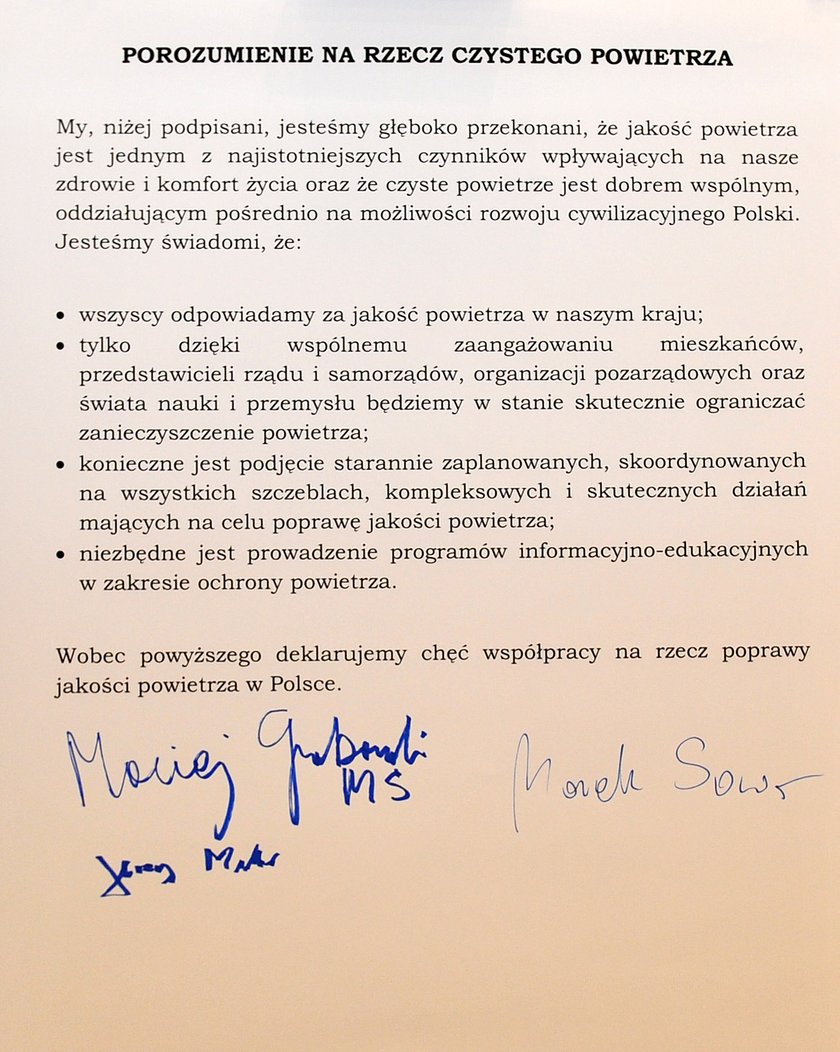 POROZUMIENIE NA RZECZ CZYSTEGO POWIETRZA
My, niżej podpisani, jesteśmy głęboko przekonani, że jakość powietrza
jest jednym z najistotniejszych czynników wpływających na nasze
zdrowie i komfort życia oraz że czyste powietrze jest dobrem wspólnym,
oddziałującym pośrednio na możliwości rozwoju cywilizacyjnego Polski.
Jesteśmy świadomi, że:
• wszyscy odpowiadamy za jakość powietrza w naszym kraju;
• tylko dzięki wspólnemu zaangażowaniu mieszkańców,
przedstawicieli rządu i samorządów, organizacji pozarządowych oraz
świata nauki i przemysłu będziemy w stanie skutecznie ograniczać
zanieczyszczenie powietrza;
• konieczne jest podjęcie starannie zaplanowanych, skoordynowanych
na wszystkich szczeblach, kompleksowych i skutecznych działań
mających na celu poprawę jakości powietrza;
• niezbędne jest prowadzenie programów informacyjno-edukacyjnych
w zakresie ochrony powietrza.
Wobec powyższego deklarujemy chęć współpracy na rzecz poprawy
jakości powietrza w Polsce.
Maciej Grabowski
MŚ
Marek Sowa
Jerzy